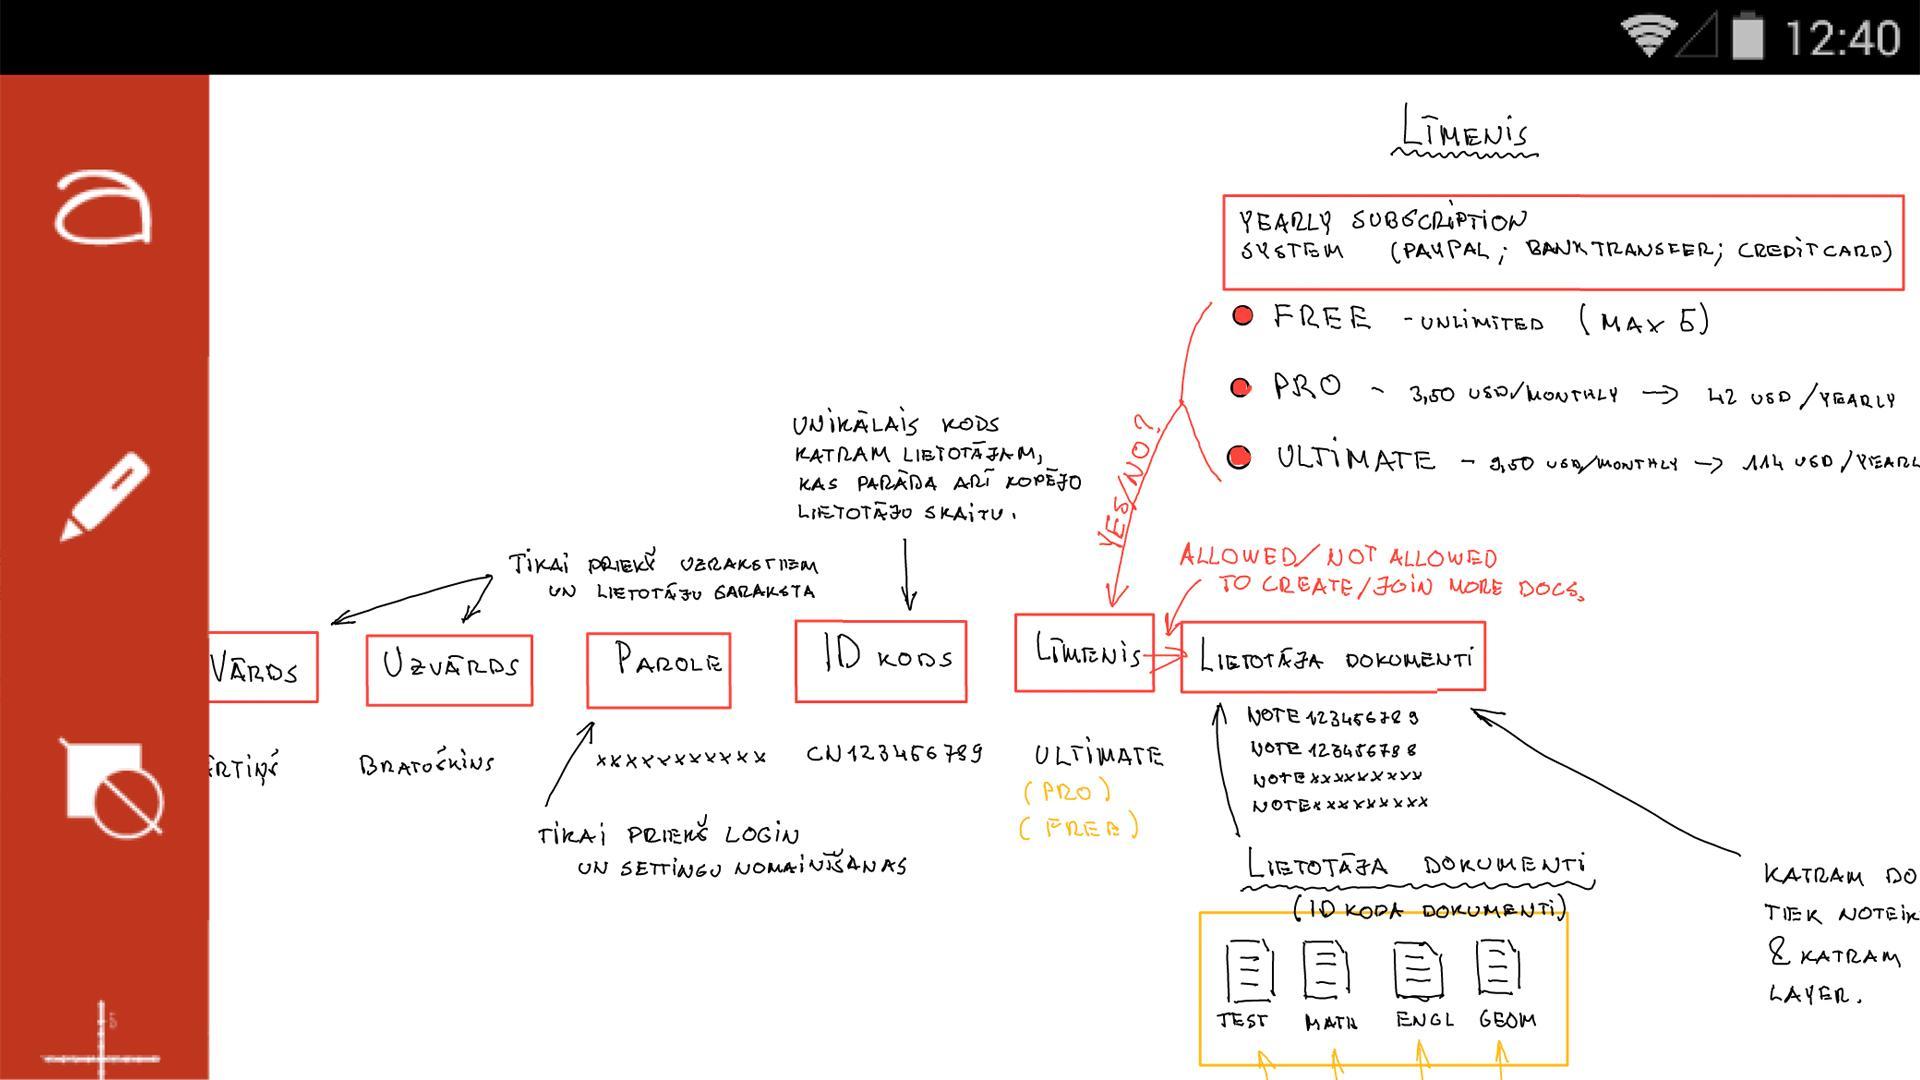 12:40
LĪMENIS
YEARLY SUBSCRIPTION
SYSTEM (PAYPAL; BANKTRANSFER; CREDITCARD)
FREE - UNLIMITED (MAX 5)
PRO - 3,50 USD/MONTHLY → 42 USD/YEARLY
ULTIMATE - 9,50 USD/MONTHLY → 114 USD/YEARL
YES/NO?
UNIKĀLAIS KODS
KATRAM LIETOTĀJAM,
KAS PARĀDA ARĪ KOPĒJO
LIETOTĀJU SKAITU.
TIKAI PRIEKŠ UZRAKSTIEM
UN LIETOTĀJU SARAKSTA
ALLOWED/NOT ALLOWED
TO CREATE/JOIN MORE DOCS.
VĀRDS
UZVĀRDS
PAROLE
ID KODS
LĪMENIS
LIETOTĀJA DOKUMENTI
ĒRTIŅŠ
BRATOŠKINS
xxxxxxxxxxx
CN123456789
ULTIMATE
(PRO)
(FREE)
NOTE123456789
NOTE123456788
NOTExxxxxxxxx
NOTExxxxxxxxx
TIKAI PRIEKŠ LOGIN
UN SETTINGU NOMAINĪŠANAS
LIETOTĀJA DOKUMENTI
(ID KODA DOKUMENTI)
TEST MATH ENGL GEOM
KATRAM DO
TIEK NOTEIK
& KATRAM
LAYER.